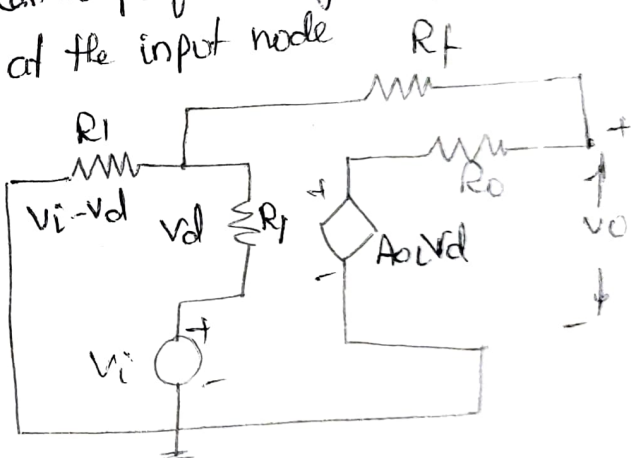 at the input node
Rf
R1
+
Ro
Vi-Vd
Vd
Ri
+
AoLVd
-
Vo
-
+
Vi
-